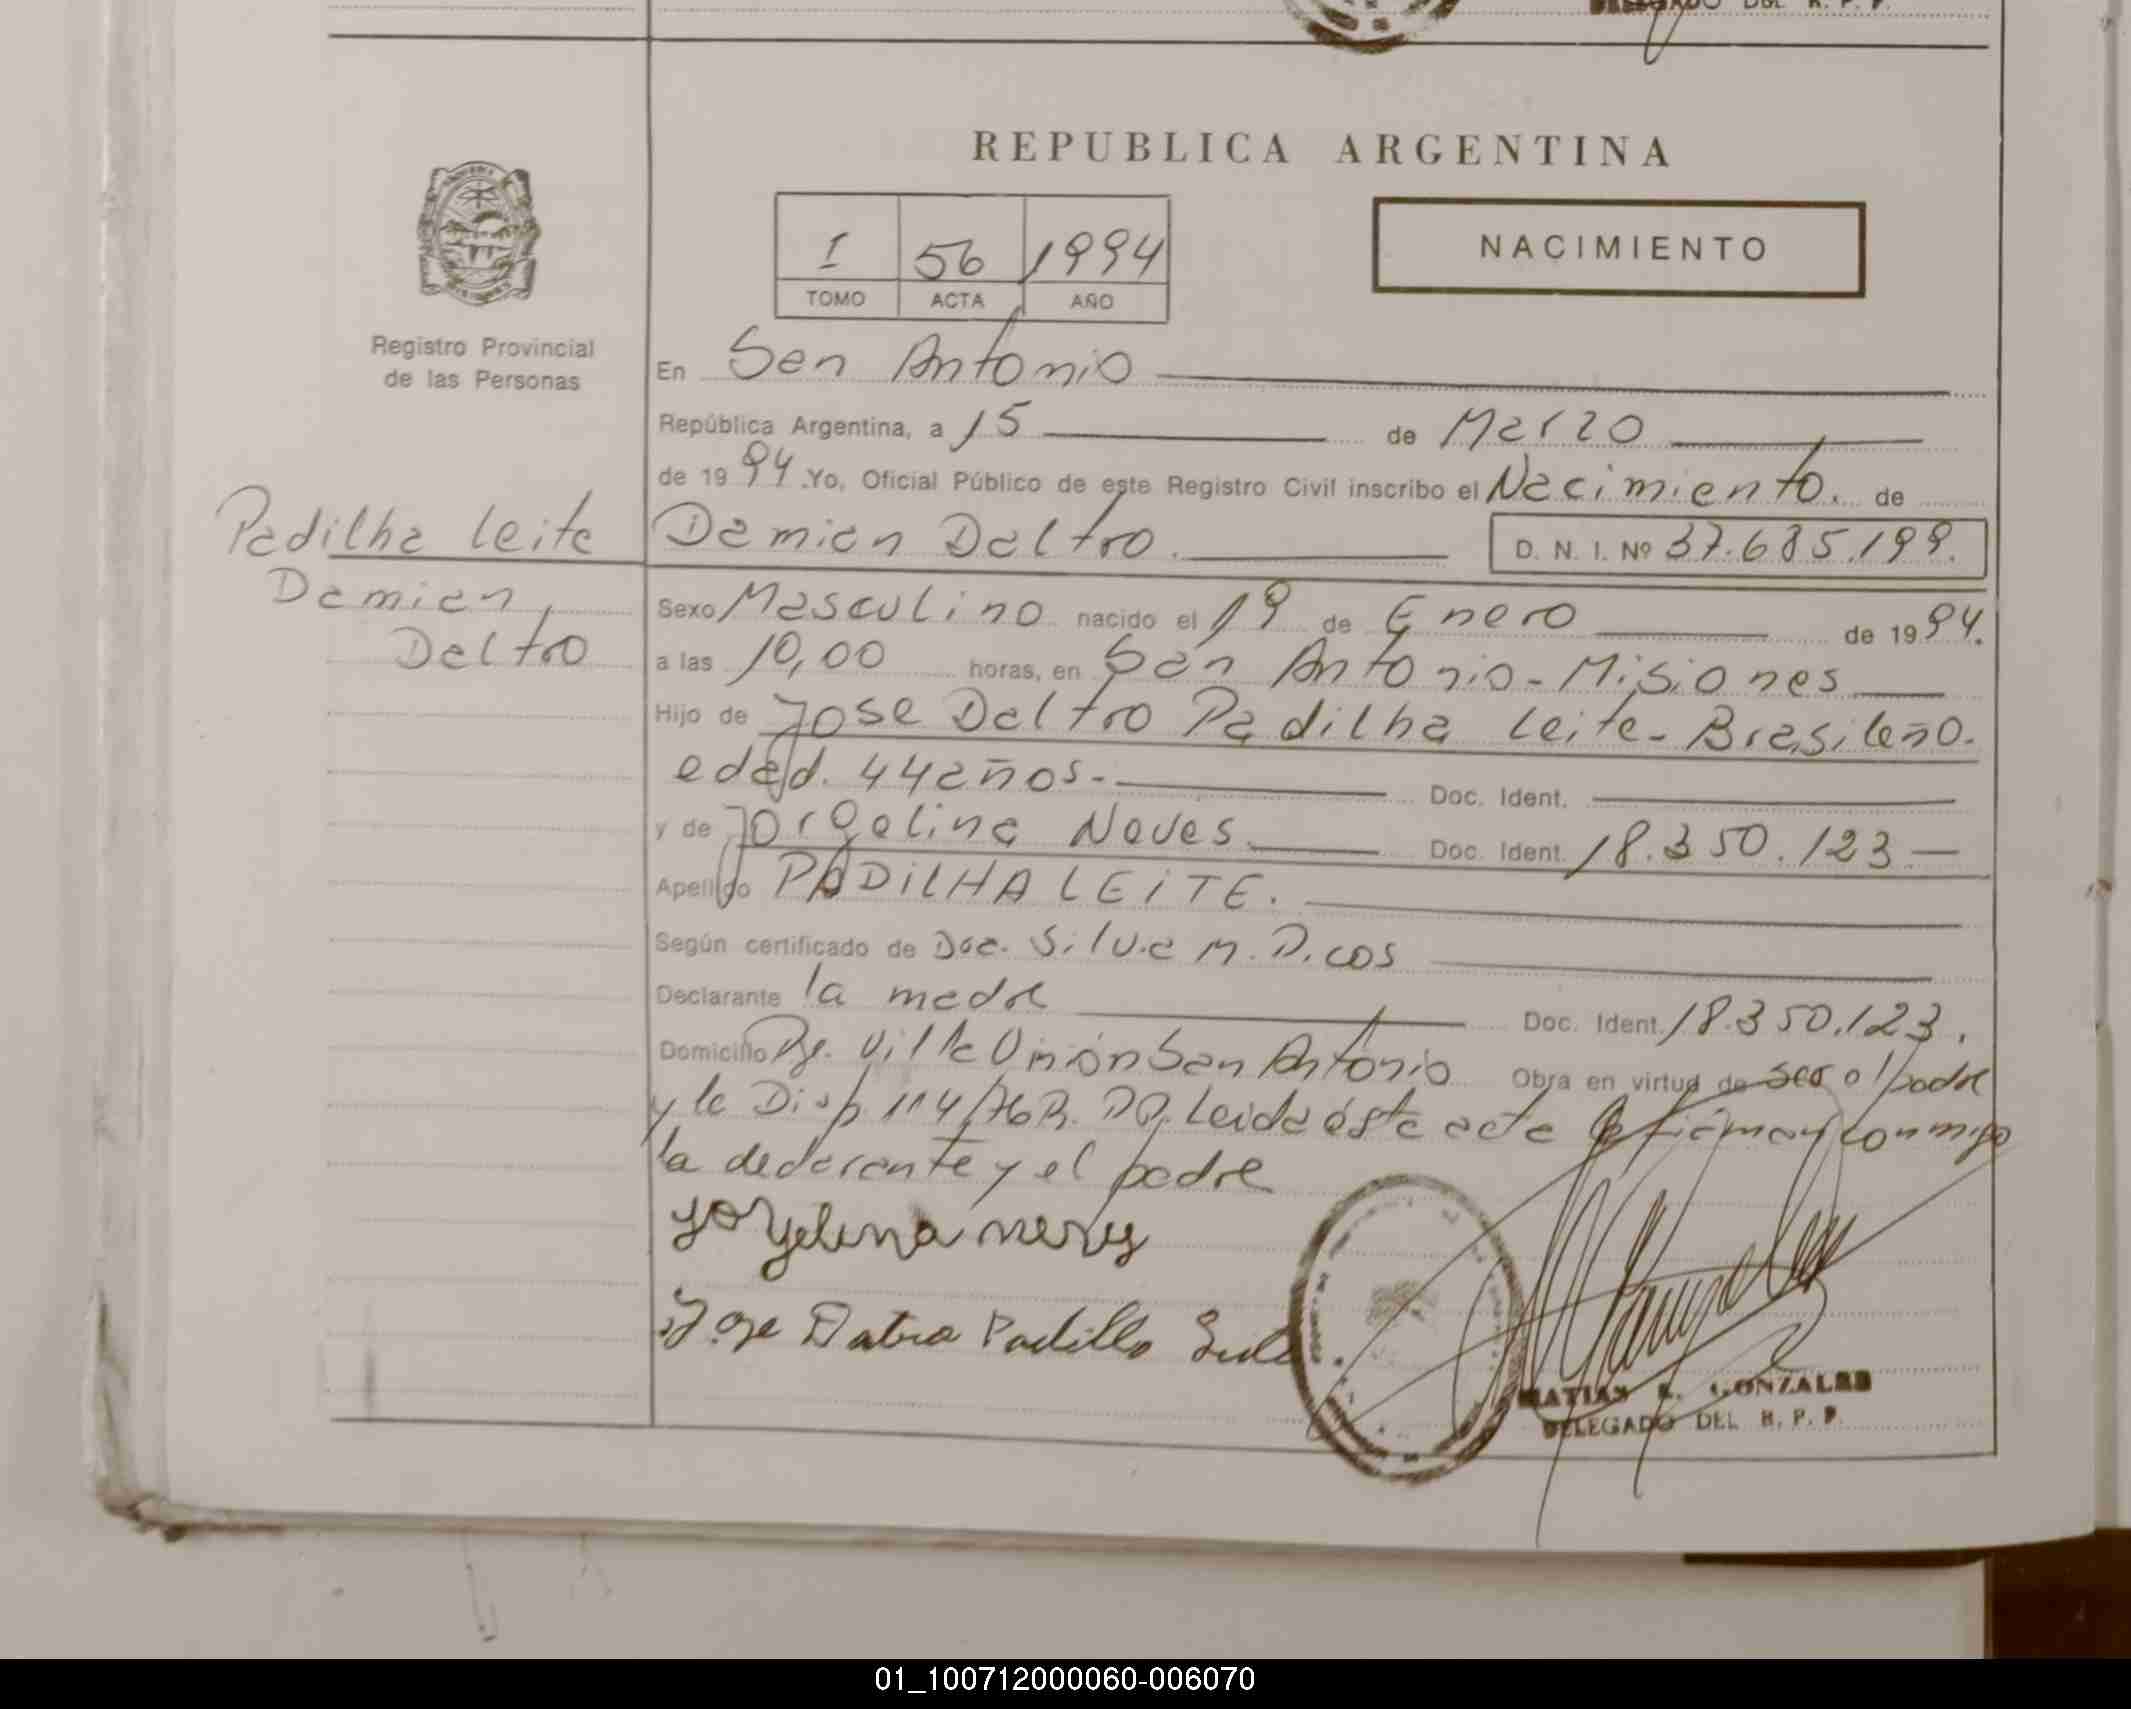 DELEGADO DEL R. P. P.
REPUBLICA ARGENTINA
I 56 1994
TOMO ACTA AÑO
NACIMIENTO
Registro Provincial
de las Personas
En San Antonio
República Argentina, a 15 de Marzo
de 1994. Yo, Oficial Público de este Registro Civil inscribo el Nacimiento. de
Padilha Leite
Damian
Daltro
Damian Daltro. D. N. I. Nº 37.685.199.
Sexo Masculino nacido el 19 de Enero de 1994.
a las 10,00 horas, en San Antonio - Misiones
Hijo de Jose Daltro Padilha Leite - Brasileño.
edad. 44 años - Doc. Ident.
y de Jorgelina Neves Doc. Ident. 18.350.123
Apellido PADILHA LEITE.
Según certificado de Doc. Silvia M.
Declarante la madre Doc. Ident. 18.350.123.
Domicilio Villa Unión San Antonio Obra en virtud de ser el padre
y la Disp. 114/76 Leida este acta firman conmigo
la declarante y el padre
Jorgelina neves
Jose Padilla
MATIAS R. GONZALEZ
DELEGADO DEL R. P. P.
01_100712000060-006070